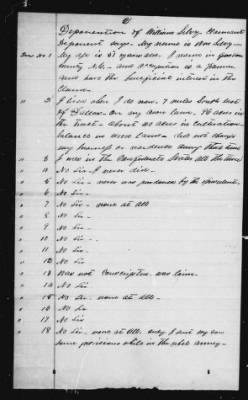 2
Deposition of William Silvey Claimant
Deponent says. My name is Wm Silvey
Question No 1 My age is 51 years old. I reside in
County N.C. and occupation is a farmer
and have the beneficial interest in the
Claim.
" 2 I lived where I do now. 7 miles South East
of Dallas. On my own land, 98 acres in
the tract. About 40 acres in Cultivation
balance in wood land. did not change
my business or residence during that time
" 3 I was in the Confederate States all the time
" 4 No Sir I never did.
" 5 No Sir. never was pardoned by the president.
" 6 No Sir
" 7 No Sir none at all
" 8 No Sir
" 9 No Sir
" 10 No Sir
" 11 No Sir
" 12 No Sir
" 13 Was not Conscripted. was lame.
" 14 No Sir
" 15 No Sir. none at all.
" 16 No Sir
" 17 No Sir
" 18 No Sir. none at all. only I and my own
some provisions while in the rebel army.